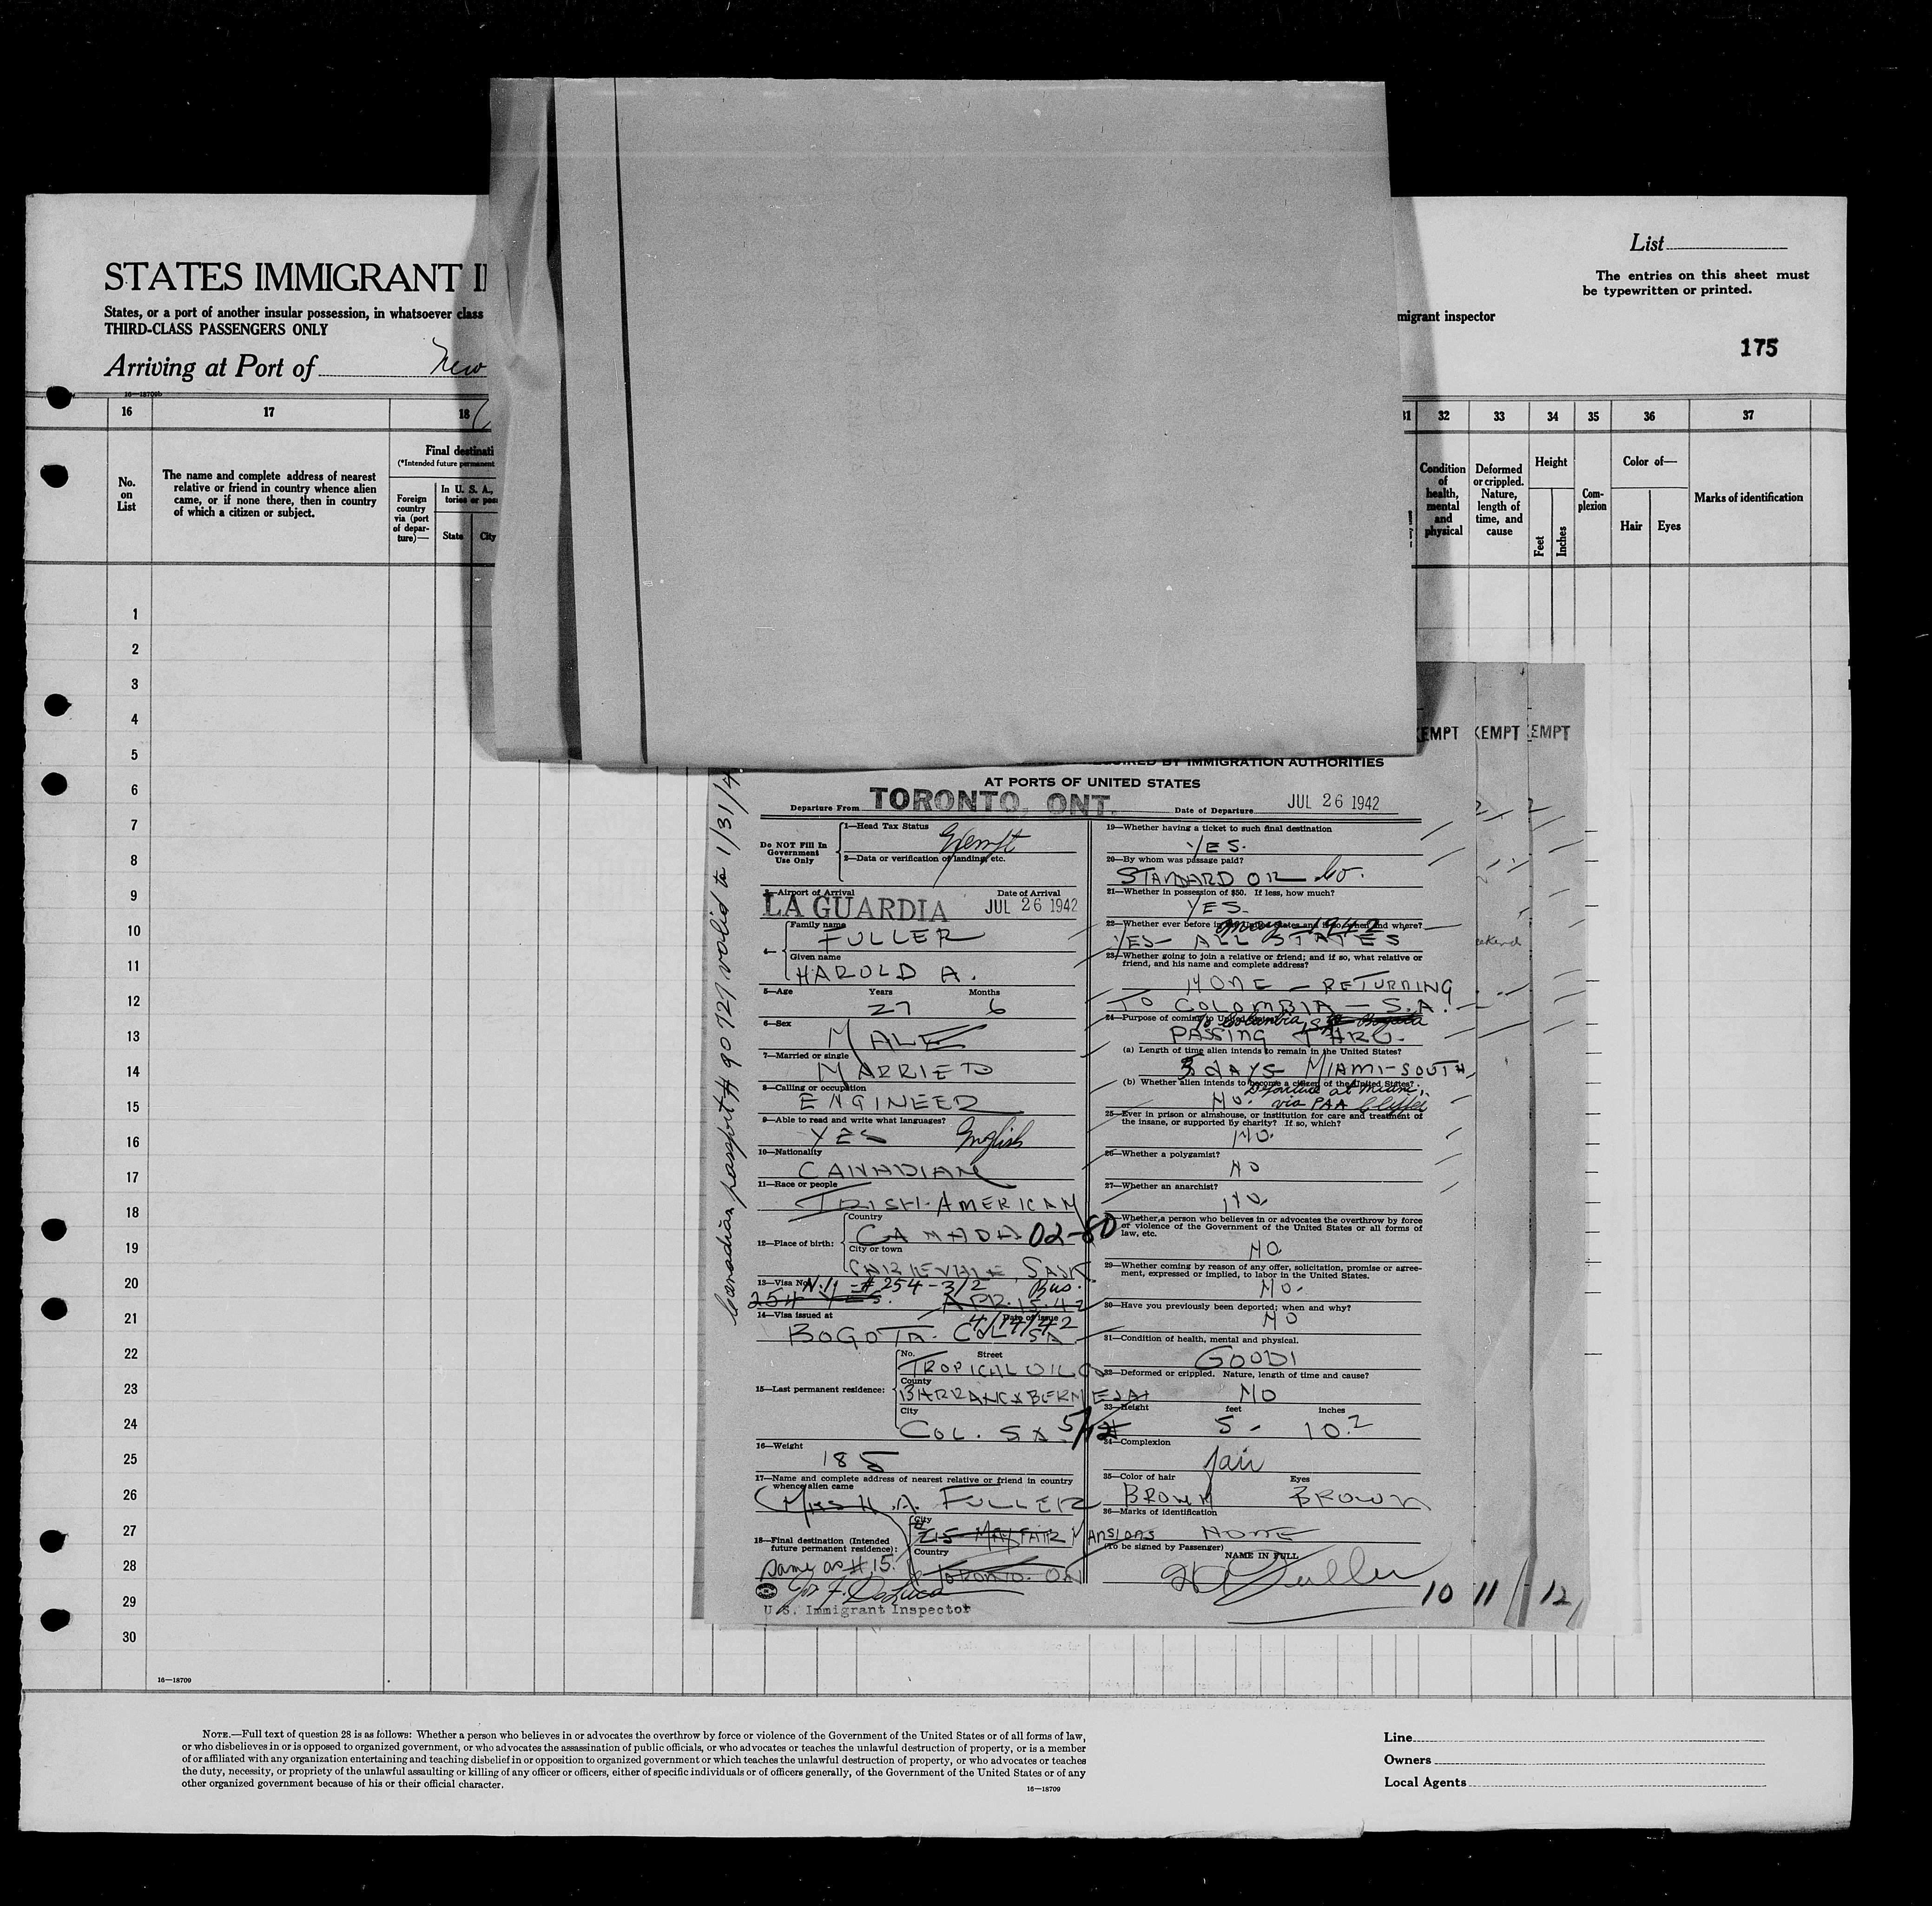 STATES IMMIGRANT I
States, or a port of another insular possession, in whatsoever class
THIRD-CLASS PASSENGERS ONLY
Arriving at Port of New
migrant inspector
List
The entries on this sheet must
be typewritten or printed.
175
16—18709b
16 17 18 31 32 33 34 35 36 37
No.
on
List
The name and complete address of nearest
relative or friend in country whence alien
came, or if none there, then in country
of which a citizen or subject.
Final destinati
(*Intended future permanent
Foreign
country
via (port
of depar-
ture)—
In U. S. A.,
tories or pos
State City
Condition
of
health,
mental
and
physical
Deformed
or crippled.
Nature,
length of
time, and
cause
Height
Feet Inches
Com-
plexion
Color of—
Hair Eyes
Marks of identification
1
2
3
4
5
6
7
8
9
10
11
12
13
14
15
16
17
18
19
20
21
22
23
24
25
26
27
28
29
30
16—18709
EMPT KEMPT EMPT
UIRED BY IMMIGRATION AUTHORITIES
AT PORTS OF UNITED STATES
Departure From TORONTO, ONT. Date of Departure JUL 26 1942
Canadian passport # 90727 valid to 1/31/4
Do NOT Fill In
Government
Use Only
1—Head Tax Status Exempt
2—Data or verification of landing, etc.
3—Airport of Arrival Date of Arrival
LA GUARDIA JUL 26 1942
4— Family name
FULLER
Given name
HAROLD A.
5—Age Years Months
27 6
6—Sex
MALE
7—Married or single
MARRIED
8—Calling or occupation
ENGINEER
9—Able to read and write what languages?
YES English
10—Nationality
CANADIAN
11—Race or people
IRISH-AMERICAN
12—Place of birth:
Country
CANADA 02-80
City or town
CARIEVALE, SASK
13—Visa No. N.I1 = # 254-3/2 Bus.
254 YES. APR. 15-42
14—Visa issued at Date of issue 4/14/42
BOGOTA. COL SA
15—Last permanent residence:
No. Street
TROPICAL OIL Co
County
BARRANCABERMEJA
City
COL. SA 5/12
16—Weight
185
17—Name and complete address of nearest relative or friend in country
whence alien came
MRS H. A. FULLER
18—Final destination (Intended
future permanent residence):
City
215 MAYFAIR MANSIONS
Country
TORONTO. ON
Same as # 15.
Jos F. DeLuca
U.S. Immigrant Inspector
19—Whether having a ticket to such final destination
YES.
20—By whom was passage paid?
STANDARD OIL Co.
21—Whether in possession of $50. If less, how much?
YES-
22—Whether ever before in the United States and if so, when and where?
May 1942
YES- ALL STATES
23—Whether going to join a relative or friend; and if so, what relative or
friend, and his name and complete address?
HOME - RETURNING
TO COLOMBIA - S.A.
24—Purpose of coming to United States?
PASSING THRU.
(a) Length of time alien intends to remain in the United States?
3 DAYS- MIAMI-SOUTH
(b) Whether alien intends to become a citizen of the United States?
Departure at Miami,
NO. via PAA Clipper
25—Ever in prison or almshouse, or institution for care and treatment of
the insane, or supported by charity? If so, which?
NO.
26—Whether a polygamist?
NO
27—Whether an anarchist?
NO.
Whether a person who believes in or advocates the overthrow by force
or violence of the Government of the United States or all forms of
law, etc.
NO
29—Whether coming by reason of any offer, solicitation, promise or agree-
ment, expressed or implied, to labor in the United States.
NO.
30—Have you previously been deported; when and why?
NO
31—Condition of health, mental and physical.
GOOD
32—Deformed or crippled. Nature, length of time and cause?
NO
33—Height feet inches
5 - 10.2
34—Complexion
fair
35—Color of hair Eyes
BROWN BROWN
36—Marks of identification
NONE
(To be signed by Passenger)
NAME IN FULL
HA Fuller
10 11 12
NOTE.—Full text of question 28 is as follows: Whether a person who believes in or advocates the overthrow by force or violence of the Government of the United States or of all forms of law,
or who disbelieves in or is opposed to organized government, or who advocates the assassination of public officials, or who advocates or teaches the unlawful destruction of property, or is a member
of or affiliated with any organization entertaining and teaching disbelief in or opposition to organized government or which teaches the unlawful destruction of property, or who advocates or teaches
the duty, necessity, or propriety of the unlawful assaulting or killing of any officer or officers, either of specific individuals or of officers generally, of the Government of the United States or of any
other organized government because of his or their official character.
16—18709
Line
Owners
Local Agents